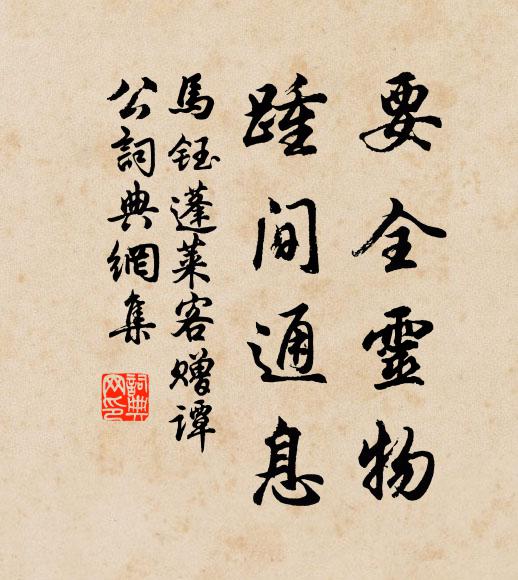 要全靈物
踵間通息
馬鈺蓬萊客贈譚
公詞典網集
詞典網印